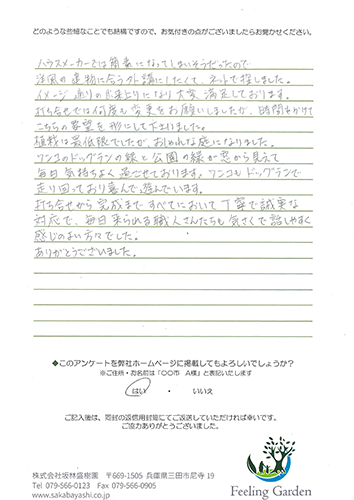 どのような些細なことでも結構ですので、お気付きの点がございましたらお聞かせください。
ハウスメーカーでは簡素になってしまいそうだったので
洋風の建物に合う外講にしたくて、ネットで探しました。
イメージ通りの出来上りになり大変満足しております。
打ち合せでは何度も変更をお願いしましたが、時間をかけて
こちらの要望を形にして下さいました。
植栽は最低限でしたが、おしゃれな庭になりました。
ワンコのドッグランの緑と公園の緑が窓から見えて
毎日気持ちよく過ごせております。ワンコもドッグランで
走り回っており喜んで遊んでいます。
打ち合せから完成まですべてにおいて丁寧で誠実な
対応で、毎日来られる職人さんたちも気さくで話しやすく
感じのよい方々でした。
ありがとうございました。
◆このアンケートを弊社ホームページに掲載してもよろしいでしょうか？
※ご住所・お名前は「〇〇市　A様」と表記いたします
はい　・　いいえ
ご記入後は、同封の返信用封筒にてご返送していただければ幸いです。
ご協力ありがとうございました。
株式会社坂林盛樹園　〒669-1505 兵庫県三田市尼寺 19
Tel 079-566-0123　Fax 079-566-0905
www.sakabayashi.co.jp
Feeling Garden